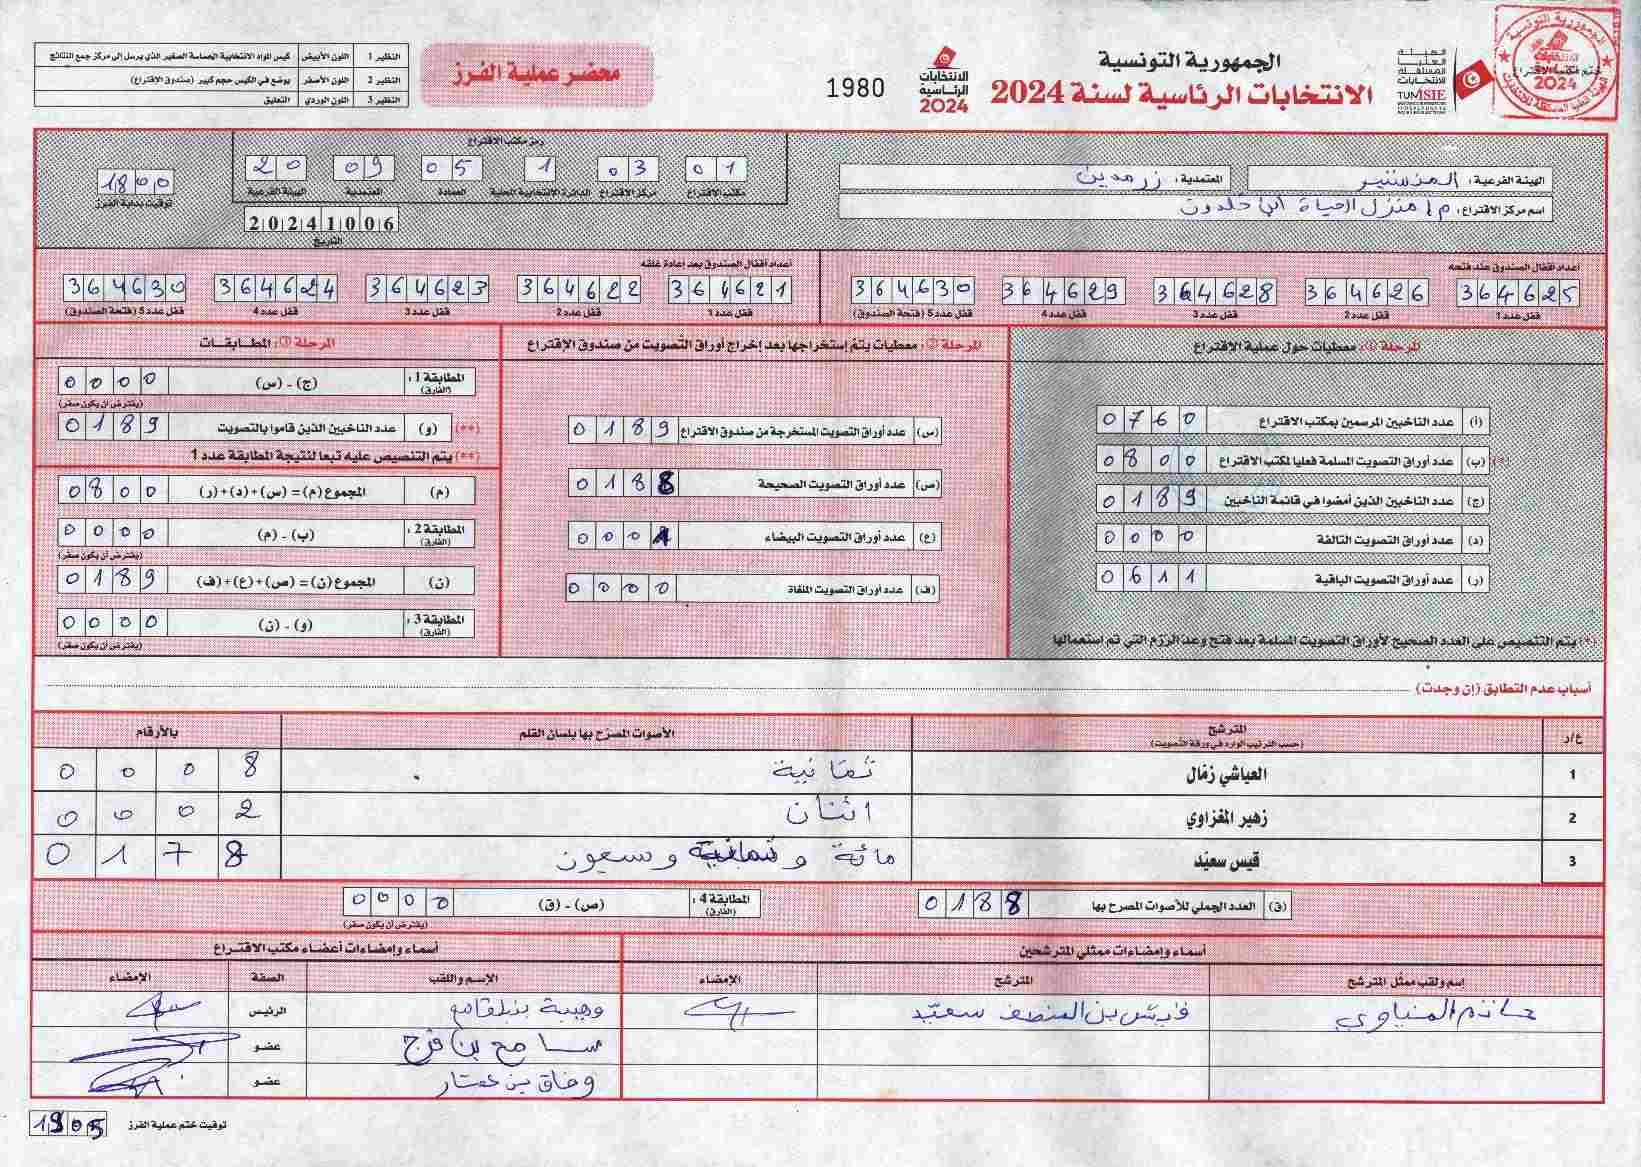 النظير 1 اللون الأبيض كيس المواد الانتخابية الحساسة الصغير الذي يرسل إلى مركز جمع النتائج
النظير 2 اللون الأصفر يوضع في الكيس حجم كبير (صندوق الاقتراع)
النظير 3 اللون الوردي التعليق
محضر عملية الفرز
1980
الانتخابات الرئاسية 2024
الجمهورية التونسية
الانتخابات الرئاسية لسنة 2024
الهيئة العليا المستقلة للانتخابات
TUNISIE
الهيئة الفرعية : المنستير
المعتمدية : زرمدين
اسم مركز الاقتراع : م ا منزل الحياة ابن خلدون
رمز مكتب الاقتراع
01 03 1 05 09 20
مكتب الاقتراع مركز الاقتراع الدائرة الانتخابية المحلية العمادة المعتمدية الهيئة الفرعية
20241006
التاريخ
1800
توقيت بداية الفرز
أعداد أقفال الصندوق عند فتحه
364625 364626 364628 364629 364630
قفل عدد 1 قفل عدد 2 قفل عدد 3 قفل عدد 4 قفل عدد 5 (فتحة الصندوق)
أعداد أقفال الصندوق بعد إعادة غلقه
364621 364622 364623 364624 364630
قفل عدد 1 قفل عدد 2 قفل عدد 3 قفل عدد 4 قفل عدد 5 (فتحة الصندوق)
المرحلة (1): معطيات حول عملية الاقتراع
(أ) عدد الناخبين المرسمين بمكتب الاقتراع 0760
(*) (ب) عدد أوراق التصويت المسلمة فعليا لمكتب الاقتراع 0800
(ج) عدد الناخبين الذين أمضوا في قائمة الناخبين 0189
(د) عدد أوراق التصويت التالفة 0000
(ر) عدد أوراق التصويت الباقية 0611
(*) يتم التنصيص على العدد الصحيح لأوراق التصويت المسلمة بعد فتح وعد الرزم التي تم استعمالها
المرحلة (2): معطيات يتم إستخراجها بعد إخراج أوراق التصويت من صندوق الإقتراع
(س) عدد أوراق التصويت المستخرجة من صندوق الاقتراع 0189
(ص) عدد أوراق التصويت الصحيحة 0188
(ع) عدد أوراق التصويت البيضاء 0001
(ف) عدد أوراق التصويت الملغاة 0000
المرحلة (3): المطابقات
المطابقة 1 : (الفارق) (ج) - (س) 0000
(يفترض أن يكون صفر)
(**) (و) عدد الناخبين الذين قاموا بالتصويت 0189
(**) يتم التنصيص عليه تبعا لنتيجة المطابقة عدد 1
(م) المجموع (م) = (س) + (د) + (ر) 0800
المطابقة 2 : (الفارق) (ب) - (م) 0000
(يفترض أن يكون صفر)
(ن) المجموع (ن) = (ص) + (ع) + (ف) 0189
المطابقة 3 : (الفارق) (و) - (ن) 0000
(يفترض أن يكون صفر)
أسباب عدم التطابق (إن وجدت)
ع/ر المترشح (حسب الترتيب الوارد في ورقة التصويت) الأصوات المصرح بها بلسان القلم بالأرقام
1 العياشي زمال ثمانية 0008
2 زهير المغزاوي اثنان 0002
3 قيس سعيد مائة وثمانية وسبعون 0178
(ق) العدد الجملي للأصوات المصرح بها 0188
المطابقة 4 : (الفارق) (ص) - (ق) 0000
(يفترض أن يكون صفر)
أسماء وإمضاءات ممثلي المترشحين
إسم ولقب ممثل المترشح المترشح الإمضاء
حاتم المنياوي قيس بن المنصف سعيد
أسماء وإمضاءات أعضاء مكتب الاقتراع
الإسم واللقب الصفة الإمضاء
وهيبة بنبلقاسم الرئيس
سامح بن فرج عضو
وفاق بن عمار عضو
توقيت ختم عملية الفرز 1905